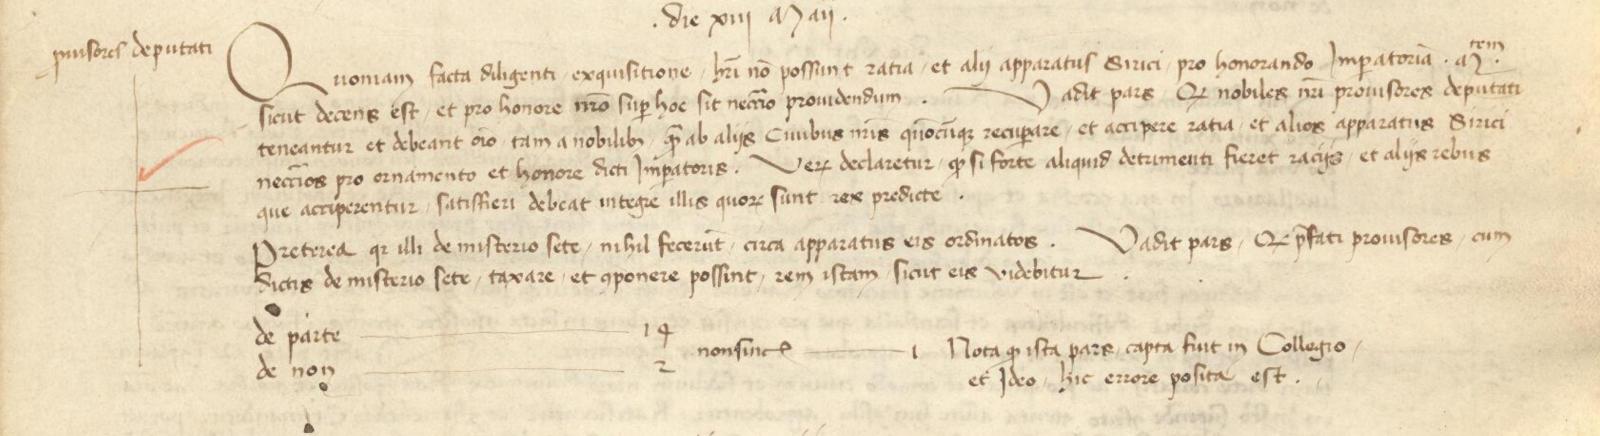 . die xiii Maii .
puisores deputati
Quoniam facta diligenti exquisitione, hri nō possunt ratia, et alij apparatus Sirici, pro honorando Imperatoriā . M.tem
sicut decens est, et pro honore nrō sup hoc sit neccīo providendum . Vadit pars, Qꝫ nobiles nri provisores deputati
teneantur et debeant oīo, tam a nobilibꝫ, qꝫ ab alijs Civibus nris quōcūqꝫ recuperare, et accipere ratia, et alios apparatus Sirici
neccīos pro ornamento et honore dicti Imperatoris . Verꝫ declaretur, qꝫ si forte aliquid detrimenti fieret racijs, et alijs rebus
que acciperentur, satisfieri debeat integre illis quorꝫ sunt rex predicte .
Preterea qr illi de misterio sete, nihil fecerūt, circa apparatus eis ordinatos . Vadit pars, Qꝫ pfati provisores, cum
dictis de misterio sete, taxare, et cponere possint, rem istam, sicut eis videbitur .
de parte 14
de non 2
non sinc 1
Nota qꝫ ista pars, capta fuit in Collegio,
et Ideo, hic errore posita est .